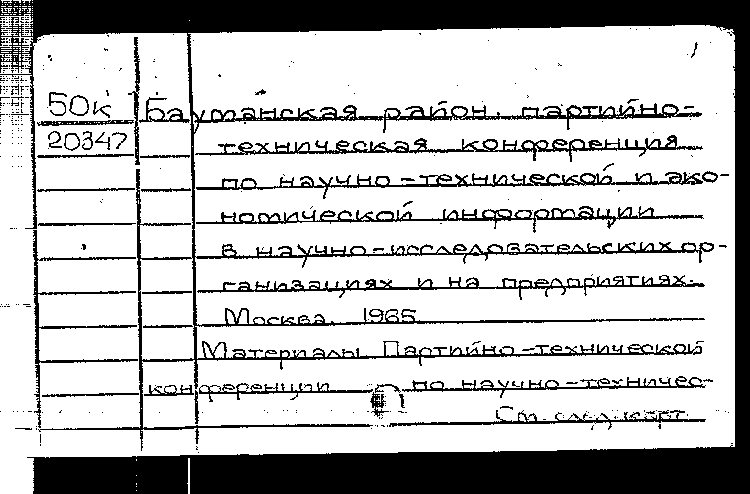 50к Бауманская район. партийно-
20347 техническая конференция
по научно-технической и эко-
номической информации
в научно-исследовательских ор-
ганизациях и на предприятиях.
Москва. 1965.
Материалы Партийно-технической
конференции по научно-техничес-
См. след. карт.